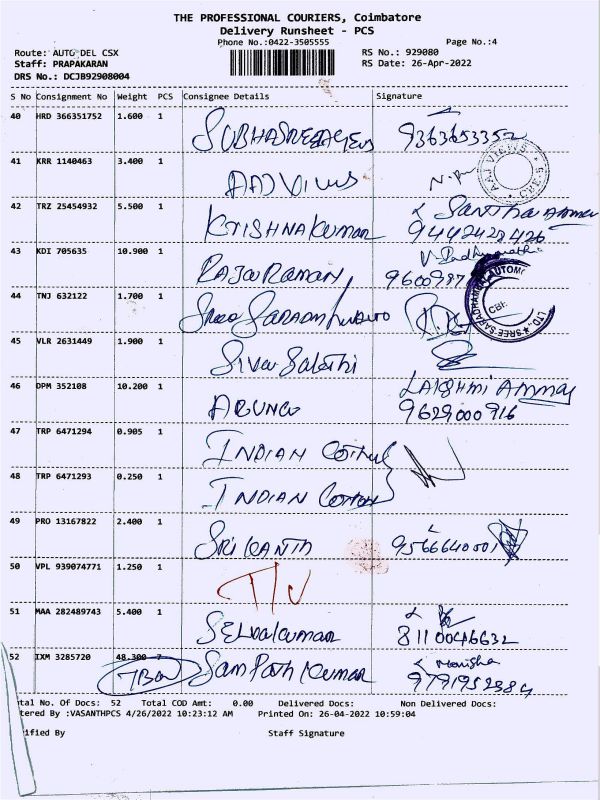 THE PROFESSIONAL COURIERS, Coimbatore
Delivery Runsheet - PCS
Phone No.:0422-3505555 Page No.:4
Route: AUTO DEL CSX RS No.: 929080
Staff: PRAPAKARAN RS Date: 26-Apr-2022
DRS No.: DCJB92908004
S No Consignment No Weight PCS Consignee Details Signature
40 HRD 366351752 1.600 1 9363653352
41 KRR 1140463 3.400 1
42 TRZ 25454932 5.500 1 Krishnakumar 9442428426
43 KDI 705635 10.900 1 Rajooraman 9600987
44 TNJ 632122 1.700 1 Sree
45 VLR 2631449 1.900 1 Siva Sakthi
46 DPM 352108 10.200 1 LAKSHMI Ammal
9629000916
47 TRP 6471294 0.905 1 INDIAN
48 TRP 6471293 0.250 1 INDIAN Cotton
49 PRO 13167822 2.400 1 SRIKANTH 9566640001
50 VPL 939074771 1.250 1
51 MAA 282489743 5.400 1 SELVAKUMAR 8110046632
52 IXM 3285720 48.300 7 Sampath Kumar Monisha
tal No. Of Docs: 52 Total COD Amt: 0.00 Delivered Docs: Non Delivered Docs:
tered By :VASANTHPCS 4/26/2022 10:23:12 AM Printed On: 26-04-2022 10:59:04
ified By Staff Signature